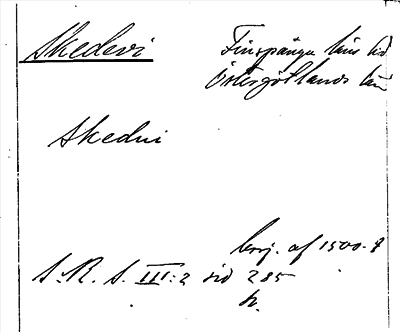 Skedevi
Finspånga läns hd
Östergötlands län
Skedui
börj. af 1500-t
S. R. S. III:2 sid 285
h.